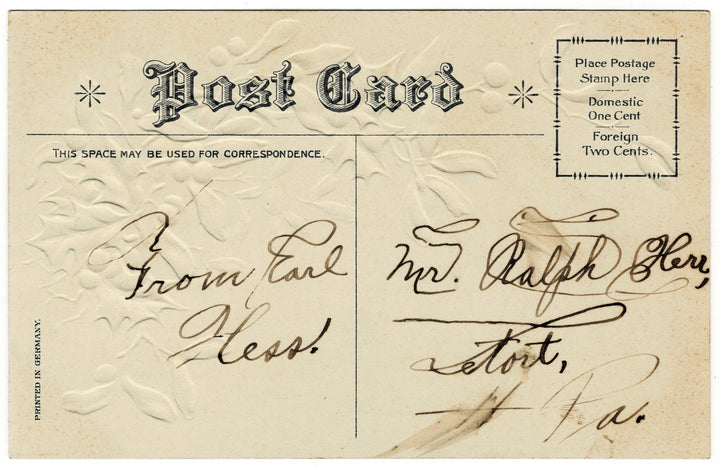 Post Card
Place Postage
Stamp Here
Domestic
One Cent
Foreign
Two Cents.
THIS SPACE MAY BE USED FOR CORRESPONDENCE.
From Earl
Hess.
Mr. Ralph Herr,
Letort,
" Pa.
PRINTED IN GERMANY.